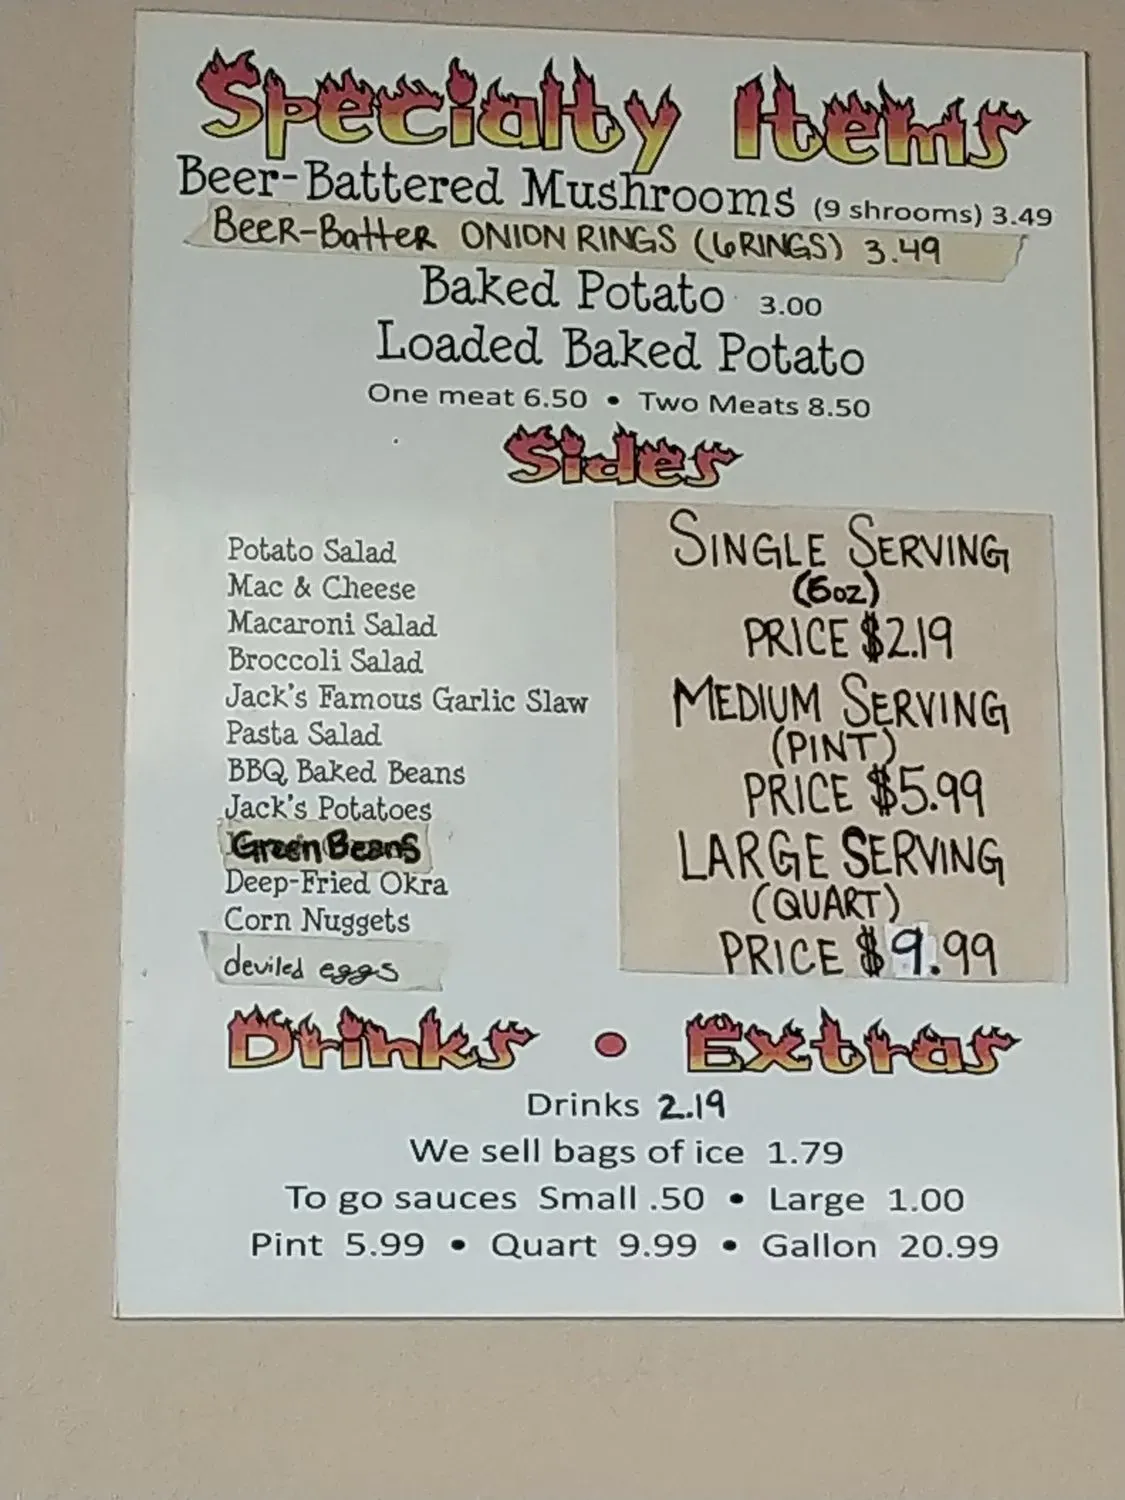 Specialty Items
Beer-Battered Mushrooms (9 shrooms) 3.49
Beer-Batter ONION RINGS (6 RINGS) 3.49
Baked Potato 3.00
Loaded Baked Potato
One meat 6.50 • Two Meats 8.50
Sides
Potato Salad
Mac & Cheese
Macaroni Salad
Broccoli Salad
Jack's Famous Garlic Slaw
Pasta Salad
BBQ Baked Beans
Jack's Potatoes
Green Beans
Deep-Fried Okra
Corn Nuggets
deviled eggs
SINGLE SERVING
(6oz)
PRICE $2.19
MEDIUM SERVING
(PINT)
PRICE $5.99
LARGE SERVING
(QUART)
PRICE $9.99
Drinks • Extras
Drinks 2.19
We sell bags of ice 1.79
To go sauces Small .50 • Large 1.00
Pint 5.99 • Quart 9.99 • Gallon 20.99